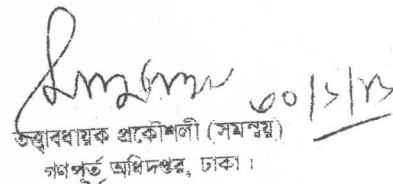 ৩০/১/১৩
তত্ত্বাবধায়ক প্রকৌশলী (সমন্বয়)
গণপূর্ত অধিদপ্তর, ঢাকা।